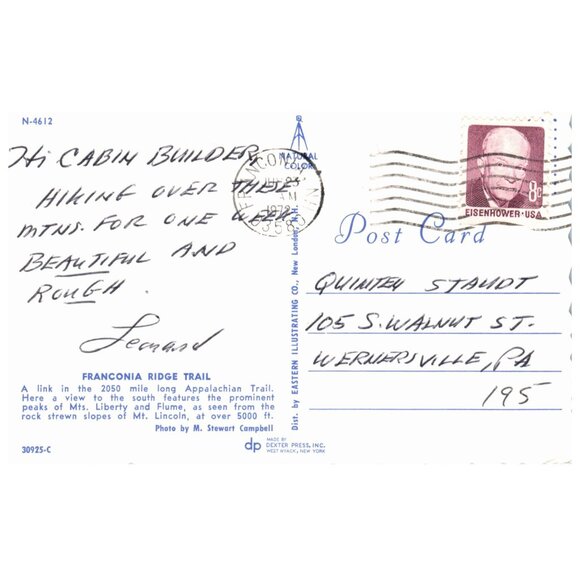 N-4612
Hi CABIN BUILDER,
HIKING OVER THESE
MTNS. FOR ONE WEEK.
BEAUTIFUL AND
ROUGH.
Leonard
FRANCONIA RIDGE TRAIL
A link in the 2050 mile long Appalachian Trail.
Here a view to the south features the prominent
peaks of Mts. Liberty and Flume, as seen from the
rock strewn slopes of Mt. Lincoln, at over 5000 ft.
Photo by M. Stewart Campbell
30925-C
dp
MADE BY
DEXTER PRESS, INC.
WEST NYACK, NEW YORK
Dist. by EASTERN ILLUSTRATING CO., New London, N.H.
NATURAL
COLOR
FRANCONIA NH
23
AM
1972
03580
8c
EISENHOWER·USA
Post Card
QUINTEN STAUDT
105 S. WALNUT ST.
WERNERSVILLE, PA
195